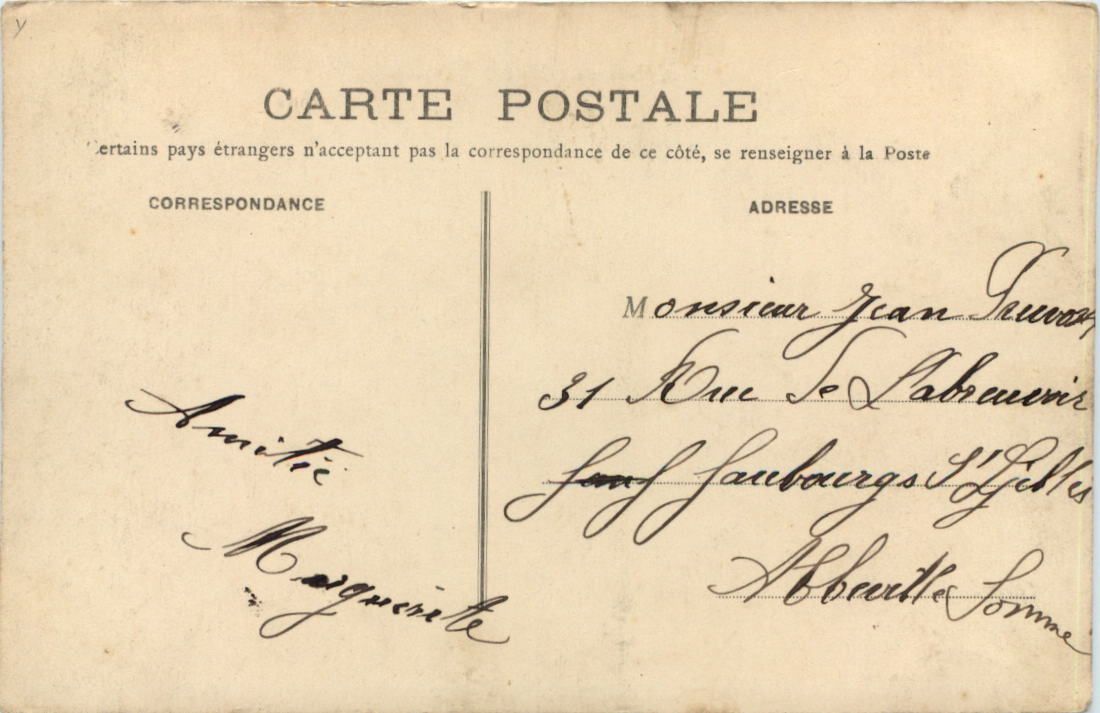 CARTE POSTALE
Certains pays étrangers n'acceptant pas la correspondance de ce côté, se renseigner à la Poste
CORRESPONDANCE
ADRESSE
Monsieur Jean Pruvost
31 Rue de L'abreuvoir
faubourgs St Gilles
Abbeville Somme
Amitié
Marguerite